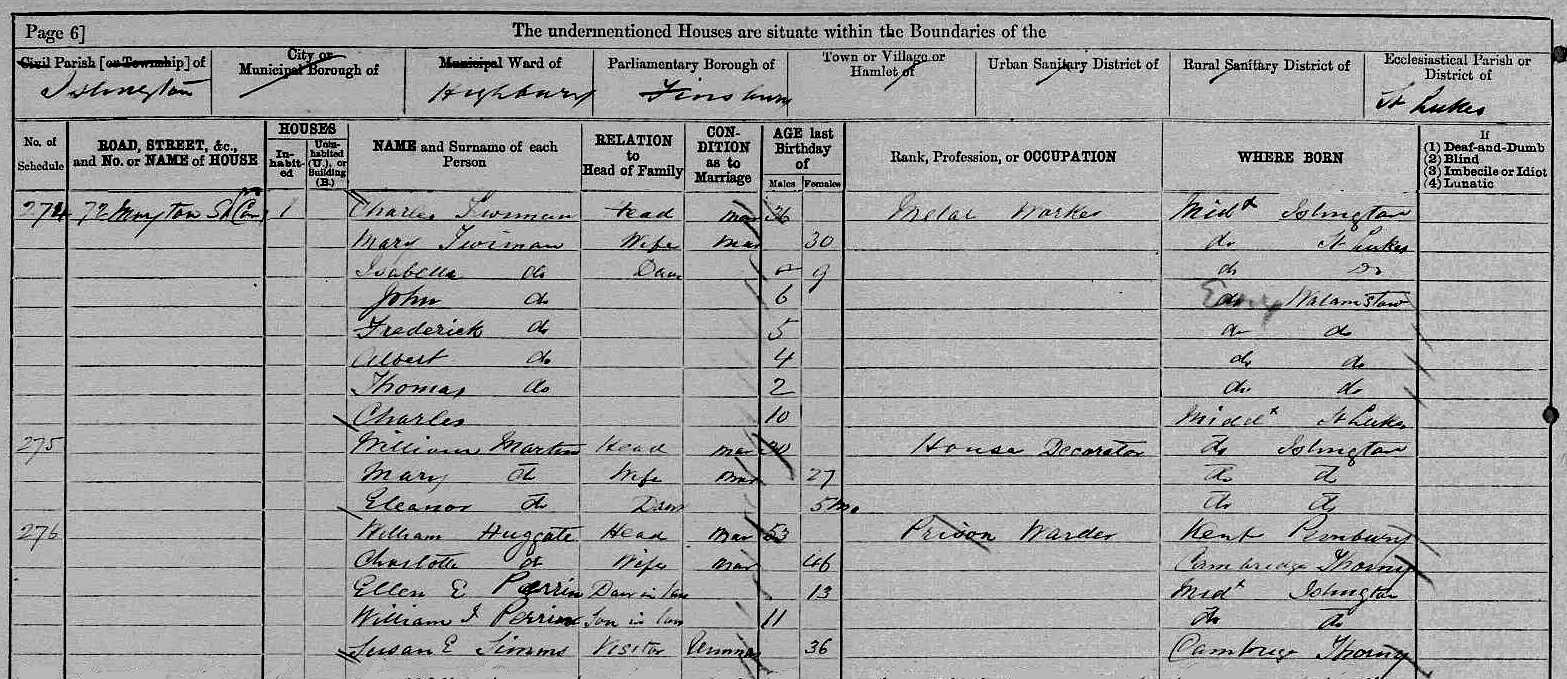 Page 6] The undermentioned Houses are situate within the Boundaries of the
Civil Parish [or Township] of City or Municipal Borough of Municipal Ward of Parliamentary Borough of Town or Village or Hamlet of Urban Sanitary District of Rural Sanitary District of Ecclesiastical Parish or District of
Islington Highbury Finsbury St Lukes
No. of Schedule ROAD, STREET, &c., and No. or NAME of HOUSE HOUSES In-habit-ed Uninhabited (U.), or Building (B.) NAME and Surname of each Person RELATION to Head of Family CON-DITION as to Marriage AGE last Birthday of Males Females Rank, Profession, or OCCUPATION WHERE BORN If (1) Deaf-and-Dumb (2) Blind (3) Imbecile or Idiot (4) Lunatic
274 72 St 1 Charles Twiman Head Mar 36 Metal Worker Midx Islington
Mary Twiman Wife Mar 30 do St Lukes
Isabella do Daur 9 do Do
John do 6 do Walamstow
Frederick do 5 do do
Albert do 4 do do
Thomas do 2 do do
Charles 10 Middx St Lukes
275 William Martin Head Mar 30 House Decorator do Islington
Mary do Wife Mar 27 do do
Eleanor do Daur 5 Mo do do
276 William Huggate Head Mar 53 Prison Warder Kent Pembury
Charlotte do Wife Mar 46 Cambridge Thorny
Ellen E Perrin Daur in law 13 Midx Islington
William J Perrin Son in law 11 do do
Susan E Simms Visitor Unmar 36 Thorny